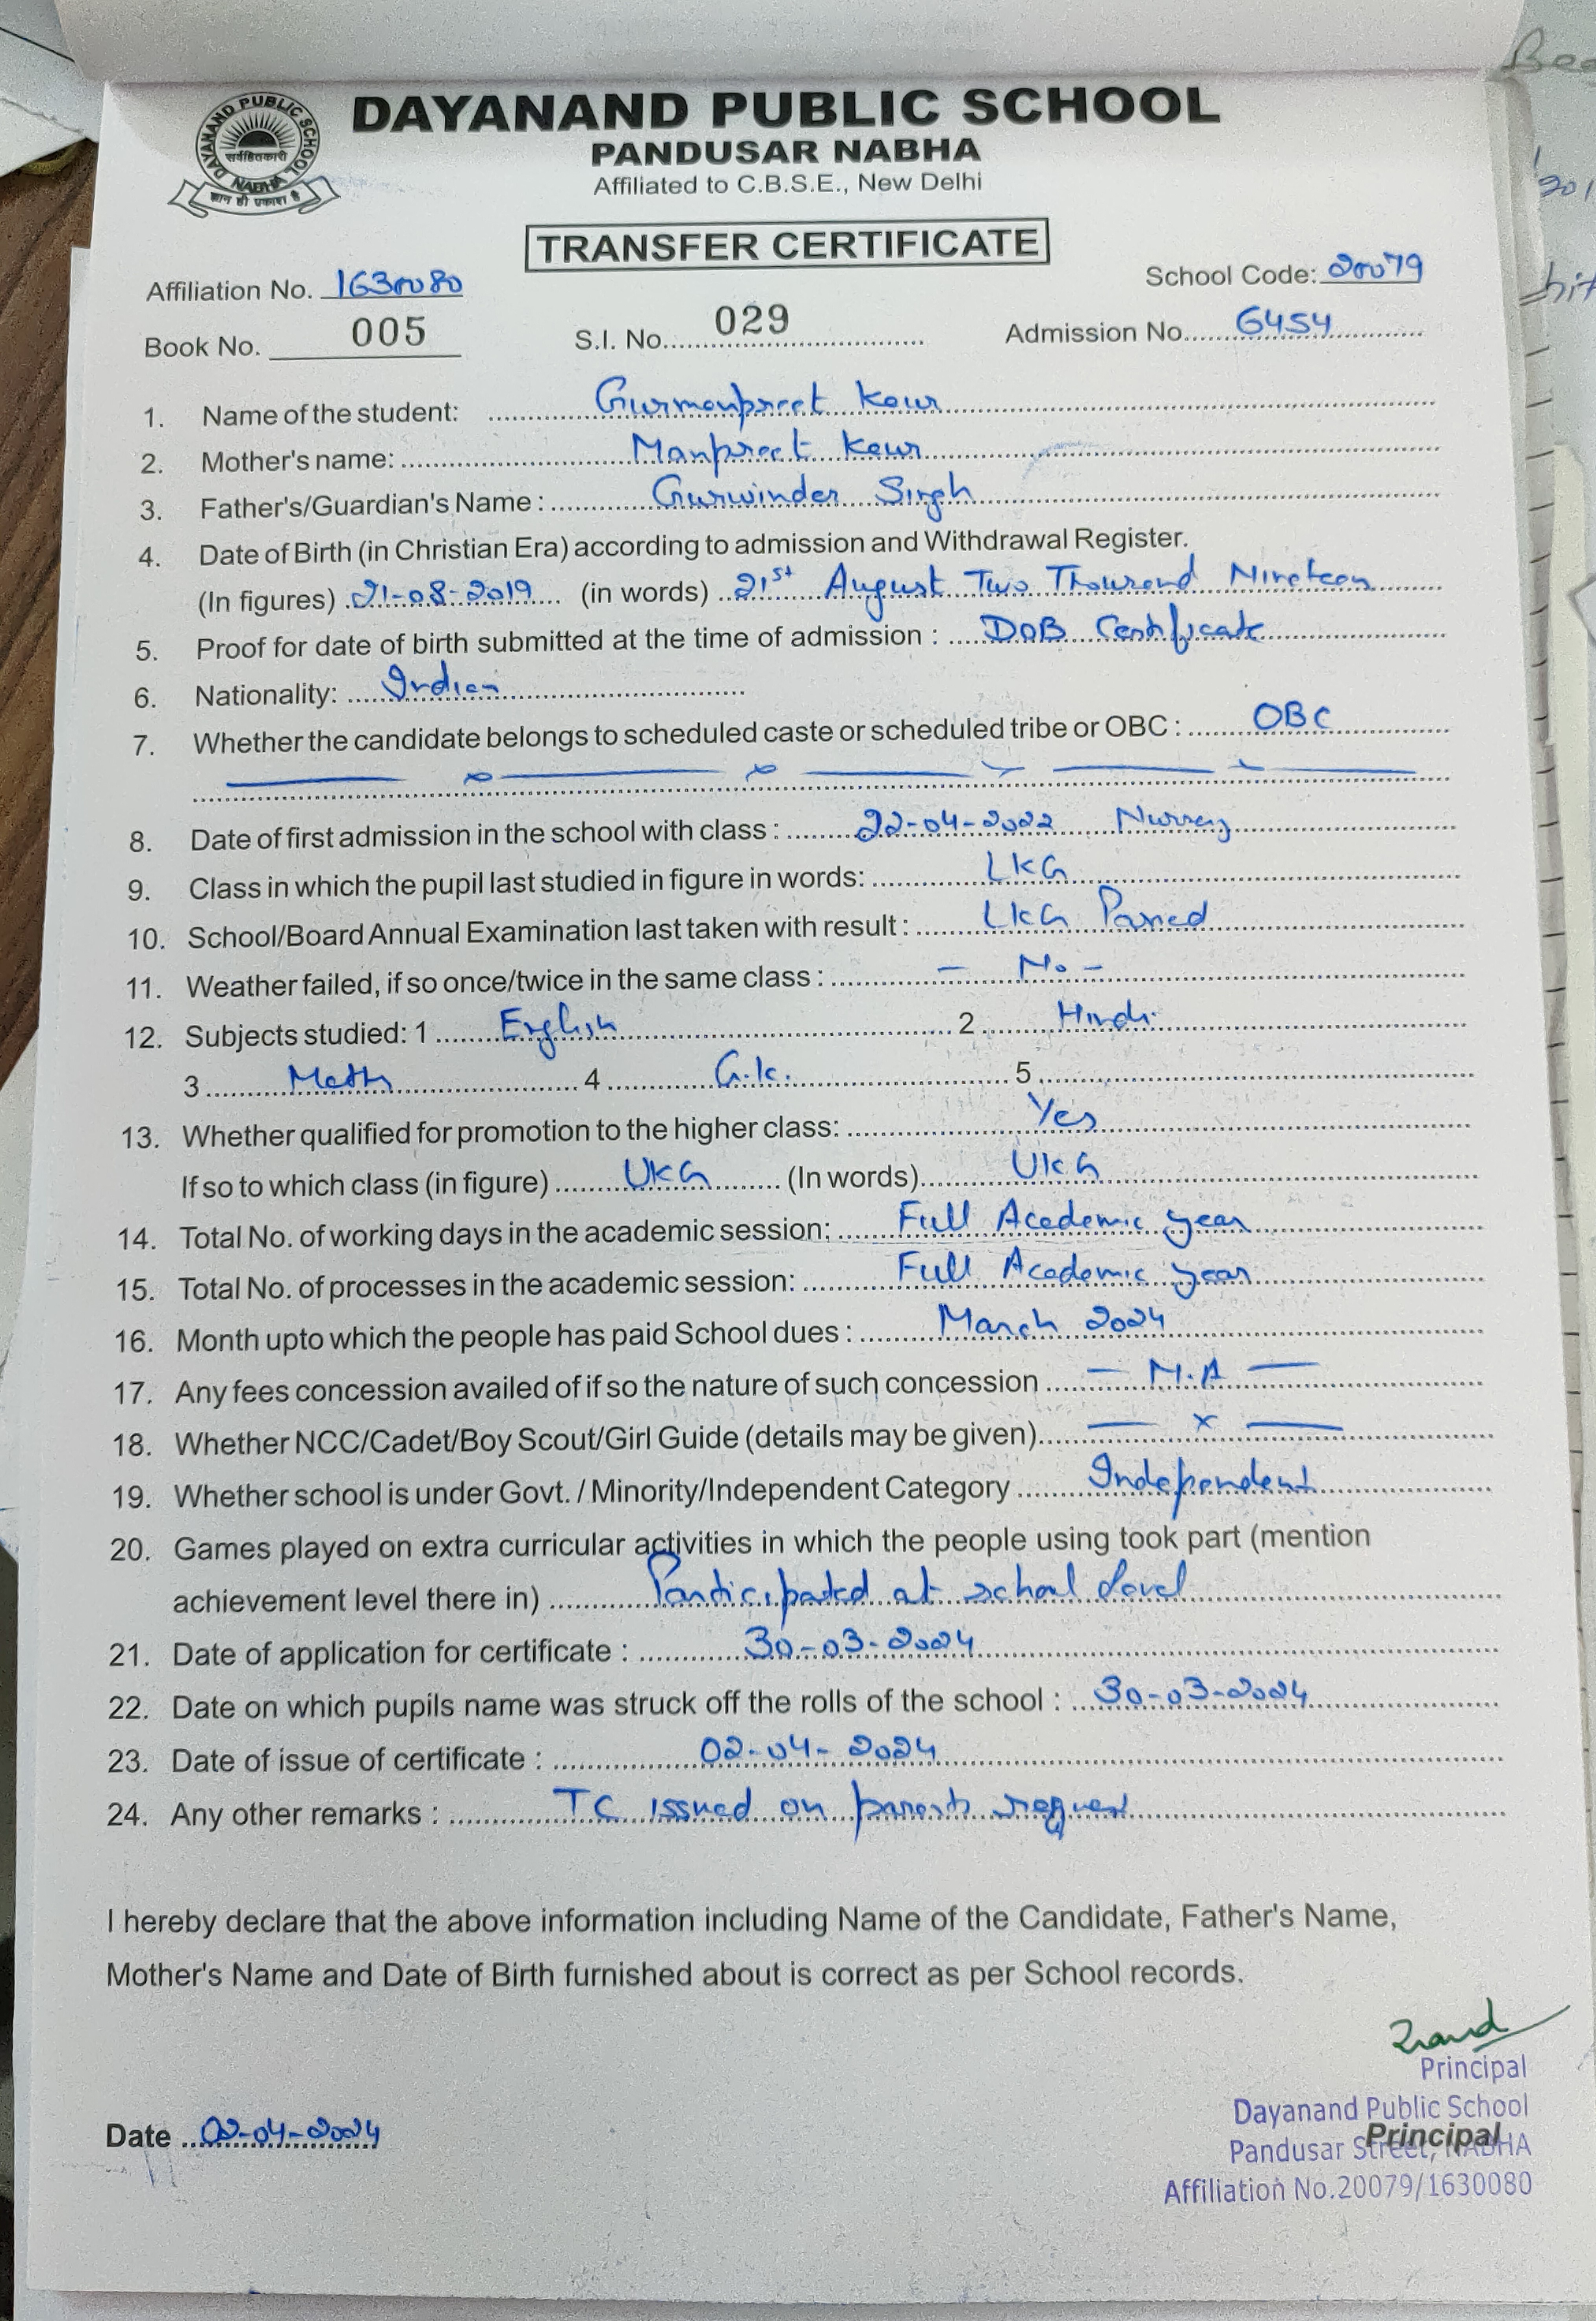 DAYANAND PUBLIC SCHOOL
DAYANAND PUBLIC SCHOOL
NABHA
सर्वहितकारी
ज्ञान ही प्रकाश है
PANDUSAR NABHA
Affiliated to C.B.S.E., New Delhi
TRANSFER CERTIFICATE
Affiliation No. 1630080 School Code: 20079
Book No. 005 S.I. No. 029 Admission No. 6454
1. Name of the student: Gurmanpreet Kaur
2. Mother's name: Manpreet Kaur
3. Father's/Guardian's Name : Gurwinder Singh
4. Date of Birth (in Christian Era) according to admission and Withdrawal Register.
(In figures) 21-08-2019 (in words) 21st August Two Thousand Nineteen
5. Proof for date of birth submitted at the time of admission : DOB Certificate
6. Nationality: Indian
7. Whether the candidate belongs to scheduled caste or scheduled tribe or OBC : OBC
8. Date of first admission in the school with class : 22-04-2022 Nursery
9. Class in which the pupil last studied in figure in words: LKG
10. School/Board Annual Examination last taken with result : LKG Passed
11. Weather failed, if so once/twice in the same class : - No -
12. Subjects studied: 1 English 2 Hindi
3 Math 4 G.K. 5
13. Whether qualified for promotion to the higher class: Yes
If so to which class (in figure) UKG (In words) UKG
14. Total No. of working days in the academic session: Full Academic year
15. Total No. of processes in the academic session: Full Academic year
16. Month upto which the people has paid School dues : March 2024
17. Any fees concession availed of if so the nature of such concession — N.A —
18. Whether NCC/Cadet/Boy Scout/Girl Guide (details may be given) — x —
19. Whether school is under Govt. / Minority/Independent Category Independent
20. Games played on extra curricular activities in which the people using took part (mention
achievement level there in) Participated at school level
21. Date of application for certificate : 30-03-2024
22. Date on which pupils name was struck off the rolls of the school : 30-03-2024
23. Date of issue of certificate : 02-04-2024
24. Any other remarks : TC issued on parents request
I hereby declare that the above information including Name of the Candidate, Father's Name,
Mother's Name and Date of Birth furnished about is correct as per School records.
Principal
Dayanand Public School
Date 02-04-2024 Principal
Pandusar Street, NABHA
Affiliation No.20079/1630080